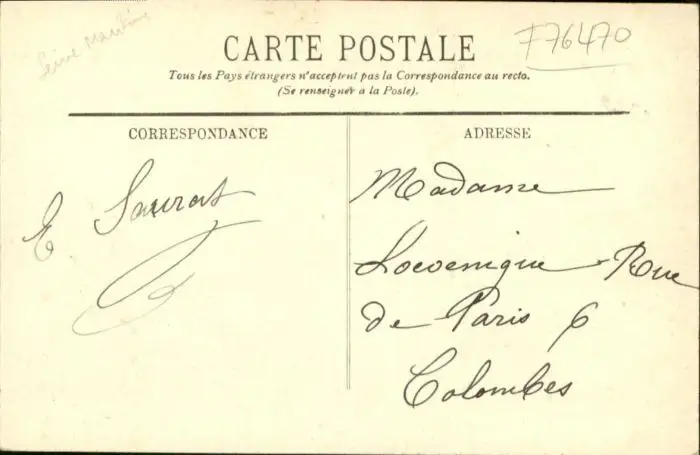 Seine Maritime
F76470
CARTE POSTALE
Tous les Pays étrangers n'acceptent pas la Correspondance au recto.
(Se renseigner à la Poste).
CORRESPONDANCE
ADRESSE
E Saurat
Madame
Loevenique Rue
de Paris 6
Colombes